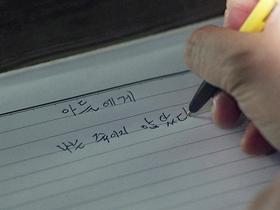 아들에게
나는 죽이지 않았다